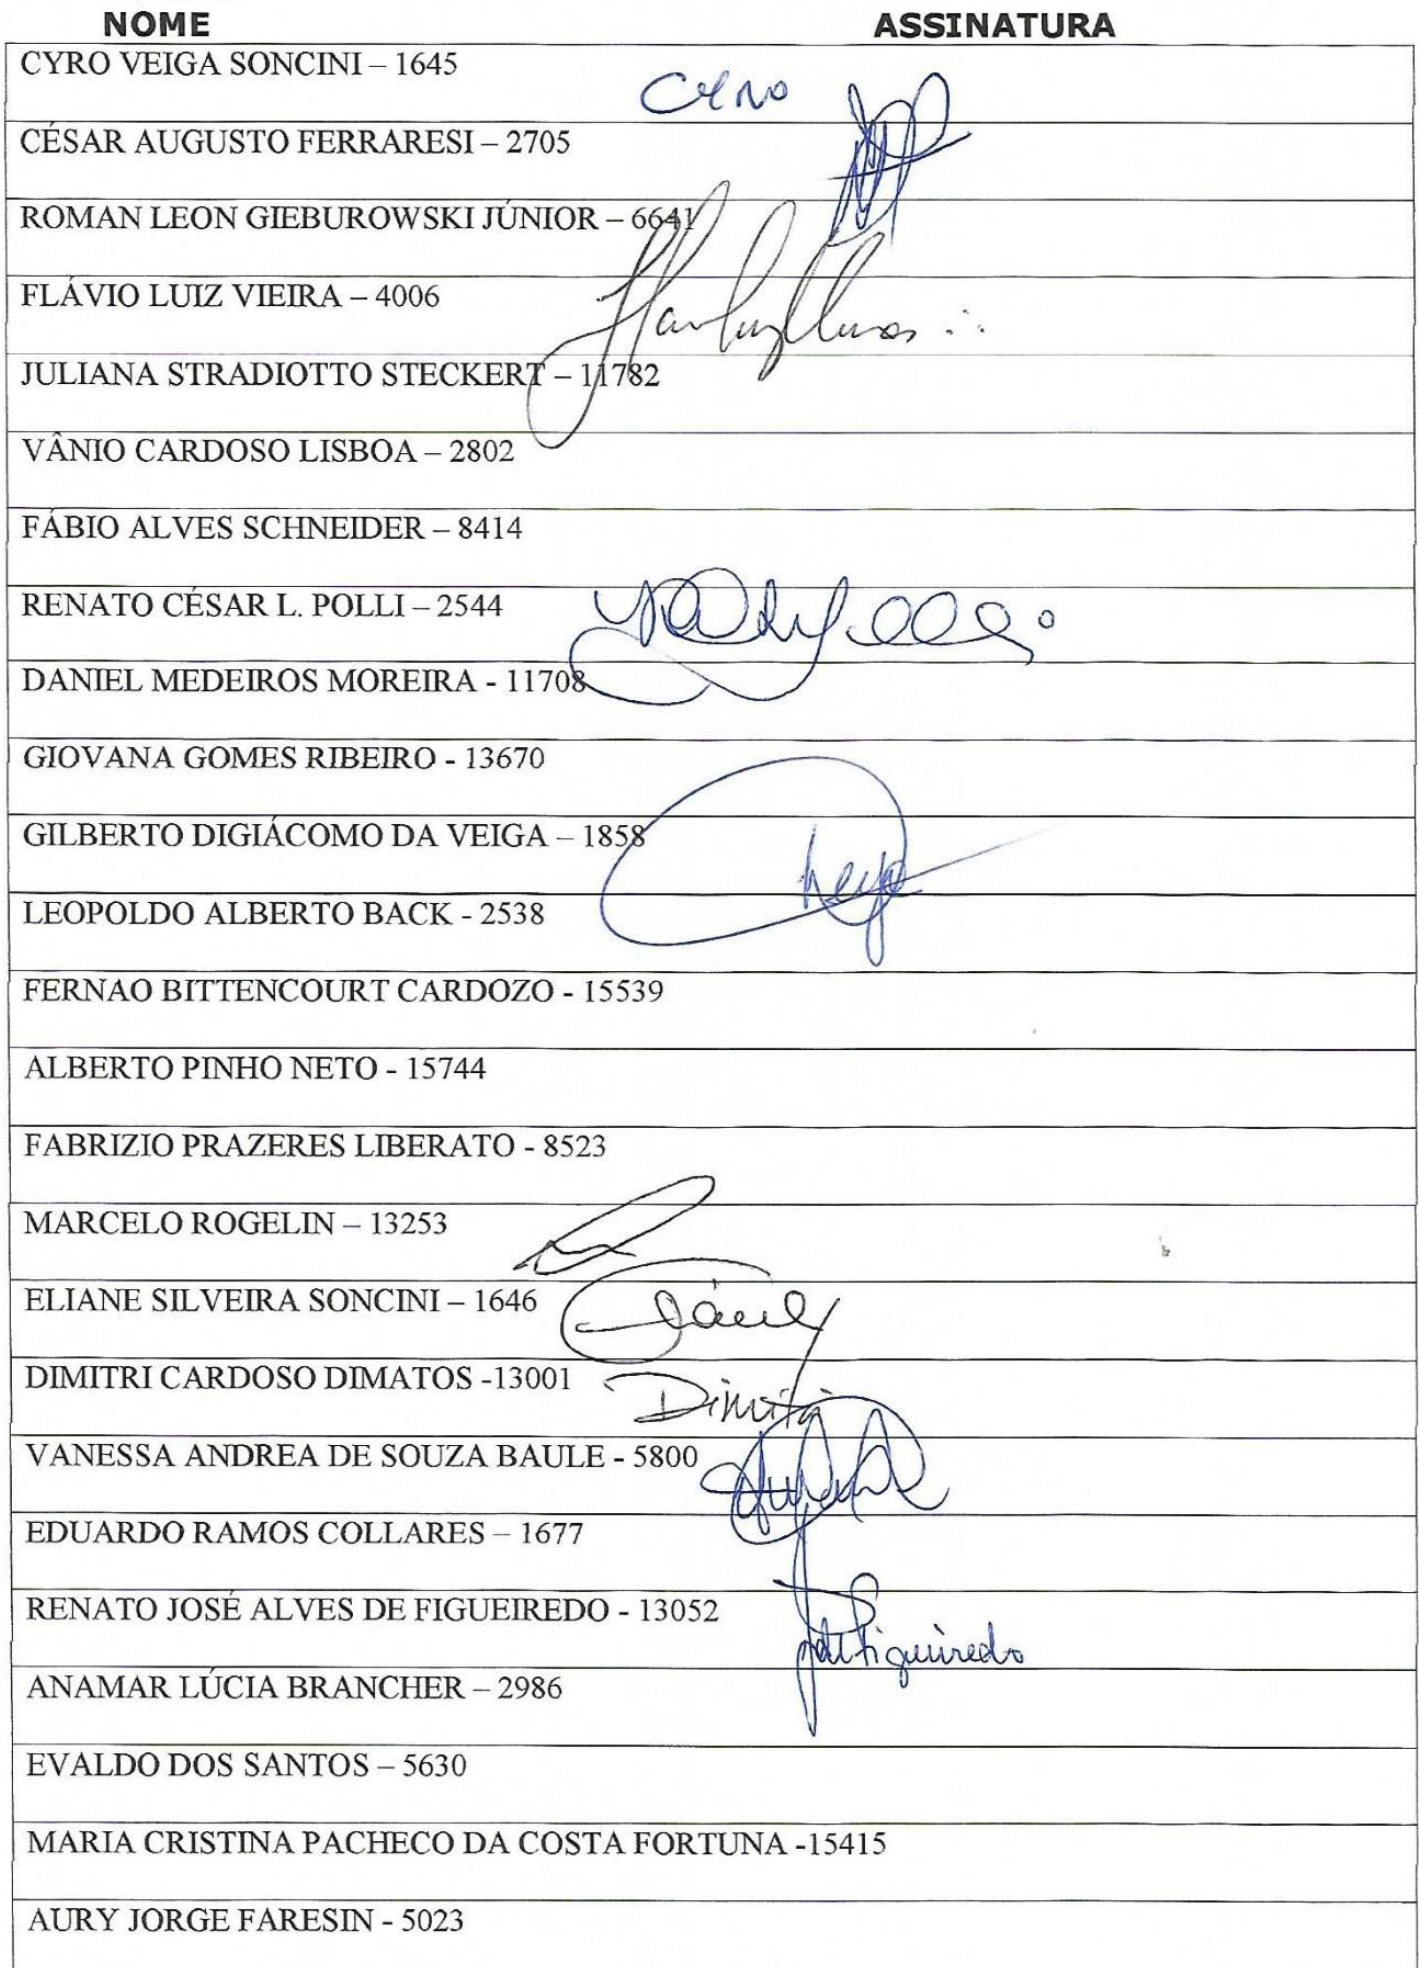 NOME ASSINATURA
CYRO VEIGA SONCINI – 1645
Cyro
CÉSAR AUGUSTO FERRARESI – 2705
ROMAN LEON GIEBUROWSKI JÚNIOR – 6641
FLÁVIO LUIZ VIEIRA – 4006
JULIANA STRADIOTTO STECKERT – 11782
VÂNIO CARDOSO LISBOA – 2802
FÁBIO ALVES SCHNEIDER – 8414
RENATO CÉSAR L. POLLI – 2544
DANIEL MEDEIROS MOREIRA - 11708
GIOVANA GOMES RIBEIRO - 13670
GILBERTO DIGIÁCOMO DA VEIGA – 1858
LEOPOLDO ALBERTO BACK - 2538
FERNAO BITTENCOURT CARDOZO - 15539
ALBERTO PINHO NETO - 15744
FABRIZIO PRAZERES LIBERATO - 8523
MARCELO ROGELIN – 13253
ELIANE SILVEIRA SONCINI – 1646
DIMITRI CARDOSO DIMATOS -13001
Dimitri
VANESSA ANDREA DE SOUZA BAULE - 5800
EDUARDO RAMOS COLLARES – 1677
RENATO JOSÉ ALVES DE FIGUEIREDO - 13052
Figueiredo
ANAMAR LÚCIA BRANCHER – 2986
EVALDO DOS SANTOS – 5630
MARIA CRISTINA PACHECO DA COSTA FORTUNA -15415
AURY JORGE FARESIN - 5023